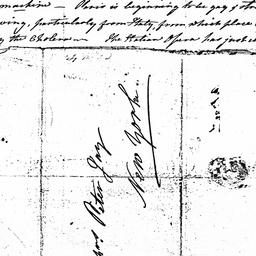 machine — Paris is beginning to be gay &
ving, particularly from Italy, from which place
by the Cholera — The Italian Opera has just
Peter Jay
New York